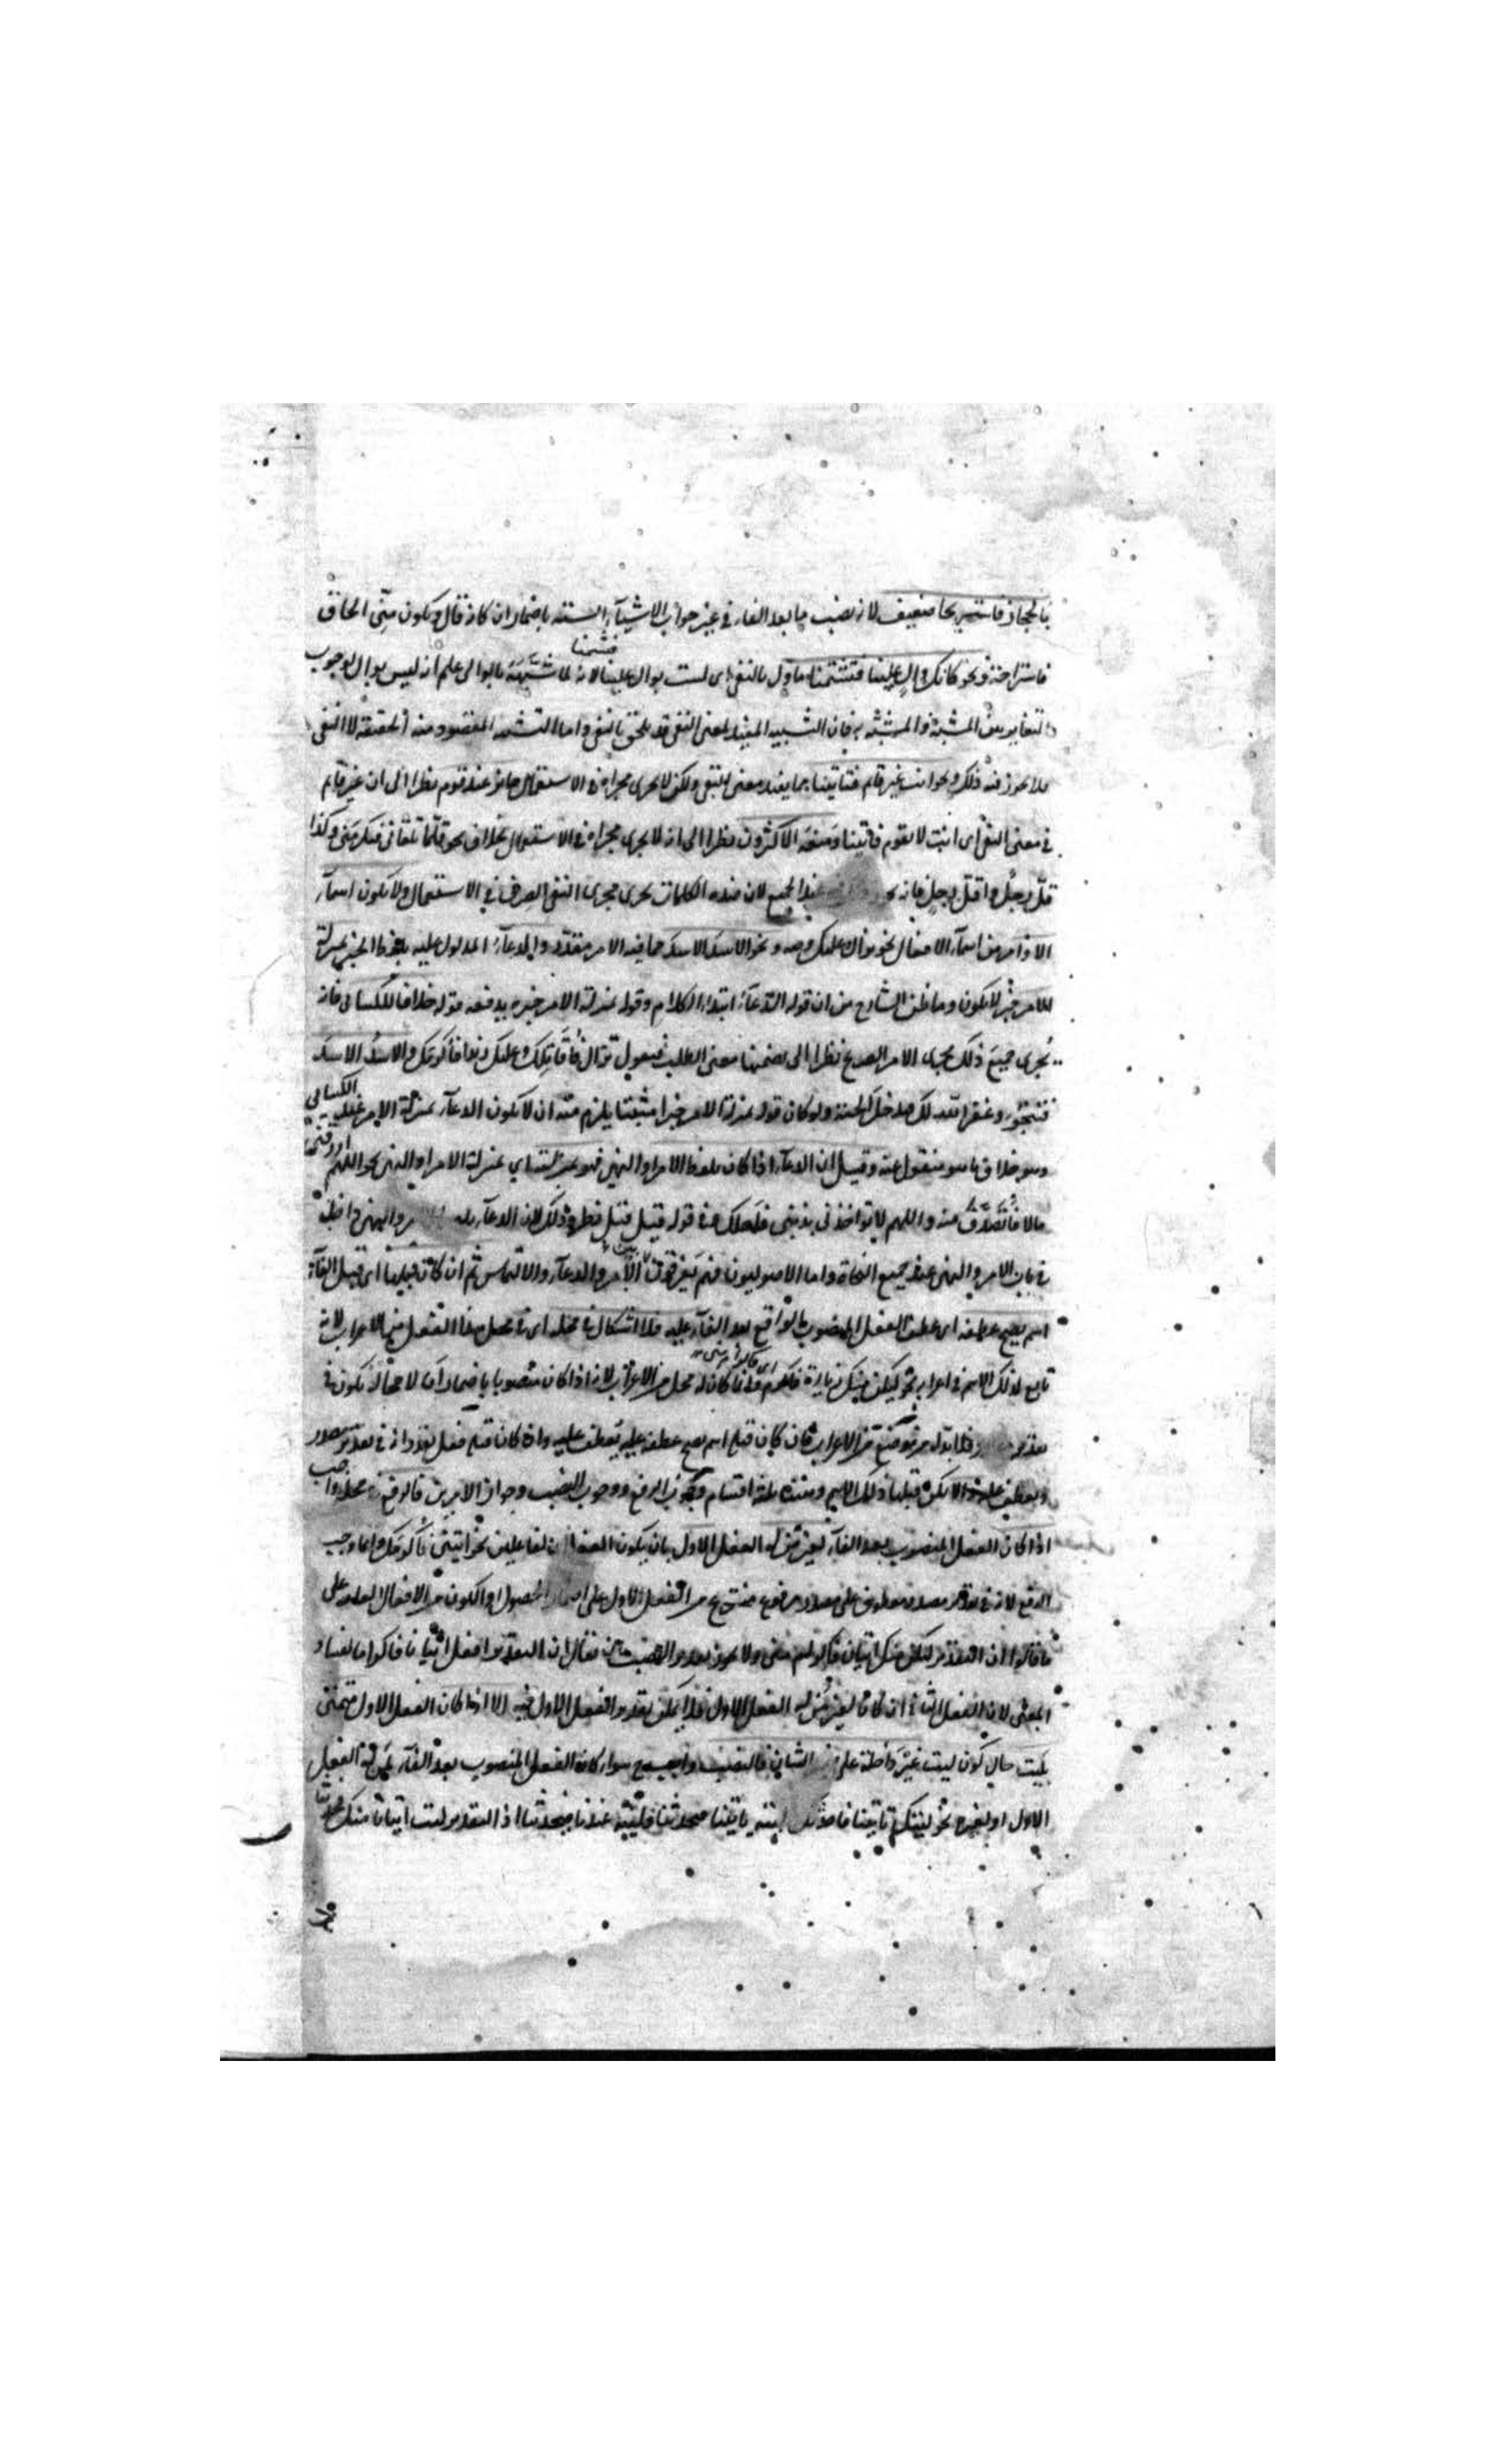 بالحجاز فاستريحا ضعيف لانه نصب ما بعد الفاء في غير جواب الاشياء الستة باضمار ان كانه قال ويكون مني الحاق
فاستراحة ونحو كانك وال علينا فتشتمنا ماول بالنفي اى لست بوال علينا فتشتمنا لانه لما شبهه بالوالى علم انه ليس بوال لوجوب
التغاير بين المشبه والمشبه به فان التشبيه المفيد لمعنى النفي قد يلحق بالنفي واما التشبيه المقصود منه الحقيقة لا النفي
فلا يجوز فيه ذلك ونحو انت غير قائم فتاتينا مما يفيد معنى النفي ولكن لا يجرى مجراه في الاستعمال جائز عند قوم نظرا الى ان غير قائم
في معنى النفي اى انت لا تقوم فتاتينا ومنعه الاكثرون نظرا الى انه لا يجرى مجراه في الاستعمال بخلاف نحو قلما تلقانى فتكرمنى وكذا
قل رجل واقل رجل فانه عند الجميع لان هذه الكلمات تجرى مجرى النفي الصرف في الاستعمال ولا يكون اسماء
الاوامر من اسماء الافعال نحو نزال وعليك وصه ونحو الاسد الاسد مما فيه الامر مقدر والدعاء المدلول عليه بلفظ الخبر بمنزلة
الامر خبر لا يكون وما ظن الشارح من ان قوله الدعاء ابتداء الكلام وقوله بمنزلة الامر خبره يدفعه قوله خلافا للكسائى فانه
يجرى جميع ذلك مجرى الامر الصريح نظرا الى تضمنها معنى الطلب فيقول نزال فاقاتلك وعليك زيدا فاكرمك والاسد الاسد
فتنجو وغفر الله لك فيدخلك الجنة ولو كان قوله بمنزلة الامر خبرا مثبتا يلزم منه ان لا يكون الدعاء بمنزلة الامر عند الكسائى
وهو خلاف ما هو منقول عنه وقيل ان الدعاء اذا كان بلفظ الامر او النهى فهو بمنزلته اي بمنزلة الامر او النهى نحو اللهم ارزقنى
مالا فاتصدق منه واللهم لا تواخذنى بذنبى فاهلك وفي قوله قيل قيل نظر وذلك لان الدعاء والنهى داخل
في باب الامر والنهى عند جميع النحاة واما الاصوليون فهم يفرقون بين الامر والدعاء والالتماس ثم ان كان قبلها اى قبل الفاء
اسم يصح عطفه اى عطف الفعل المنصوب الواقع بعد الفاء عليه فلا اشكال في محله اى في محل هذا الفعل من الاعراب لانه
تابع لذلك الاسم في اعرابه نحو ليكن منك زيارة فاكرمك وانما كان له محل من الاعراب لانه اذا كان منصوبا باضمار ان لا محالة يكون في
فلا بد له من موضع من الاعراب فان كان قبله اسم يصح عطفه عليه يعطف عليه وان كان قبله فعل يقدر انه في تقدير مصدر
ويعطف عليه والا يكن قبلها ذلك الاسم وهذه ثلثة اقسام وجوب الرفع ووجوب النصب وجواز الامرين فالرفع في محله واجب
اذا كان الفعل المنصوب بعد الفاء لغير من له الفعل الاول بان يكون الفعلان لفاعلين نحو ائتنى فاكرمك وانما وجب
الرفع لانه في تقدير مصدر معطوف على مصدر مرفوع منتزع من الفعل الاول على اضمار الحصول او الكون من الافعال العامة على
ما قالوا ان التقدير ليكن منك اتيان فاكرام منى ولا يجوز تقدير النصب فيقال ان التقدير افعل اتيانا فاكراما لفساد
المعنى لان الفعل الثانى ان كان لغير من له الفعل الاول فلا يمكن تقدير الفعل الاول فيه الا اذا كان الفعل الاول متمنى
بليت حال كون ليت غير داخلة على الشانى فالنصب واجب سواء كان الفعل المنصوب بعد الفاء لمن له الفعل
الاول او لغيره نحو ليتكم تاتينا فتحدثنا وليته عندنا فيحدثنا اذ التقدير ليت اتيانا منك